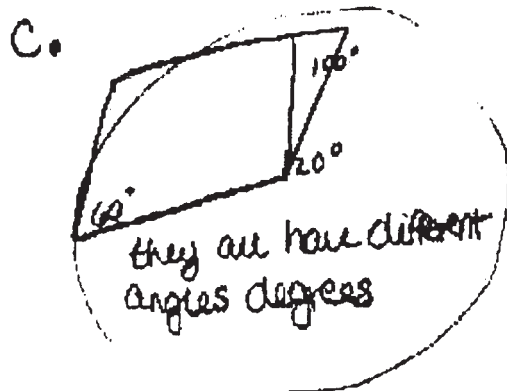 C.
100°
20°
60°
they all have different
angles degrees